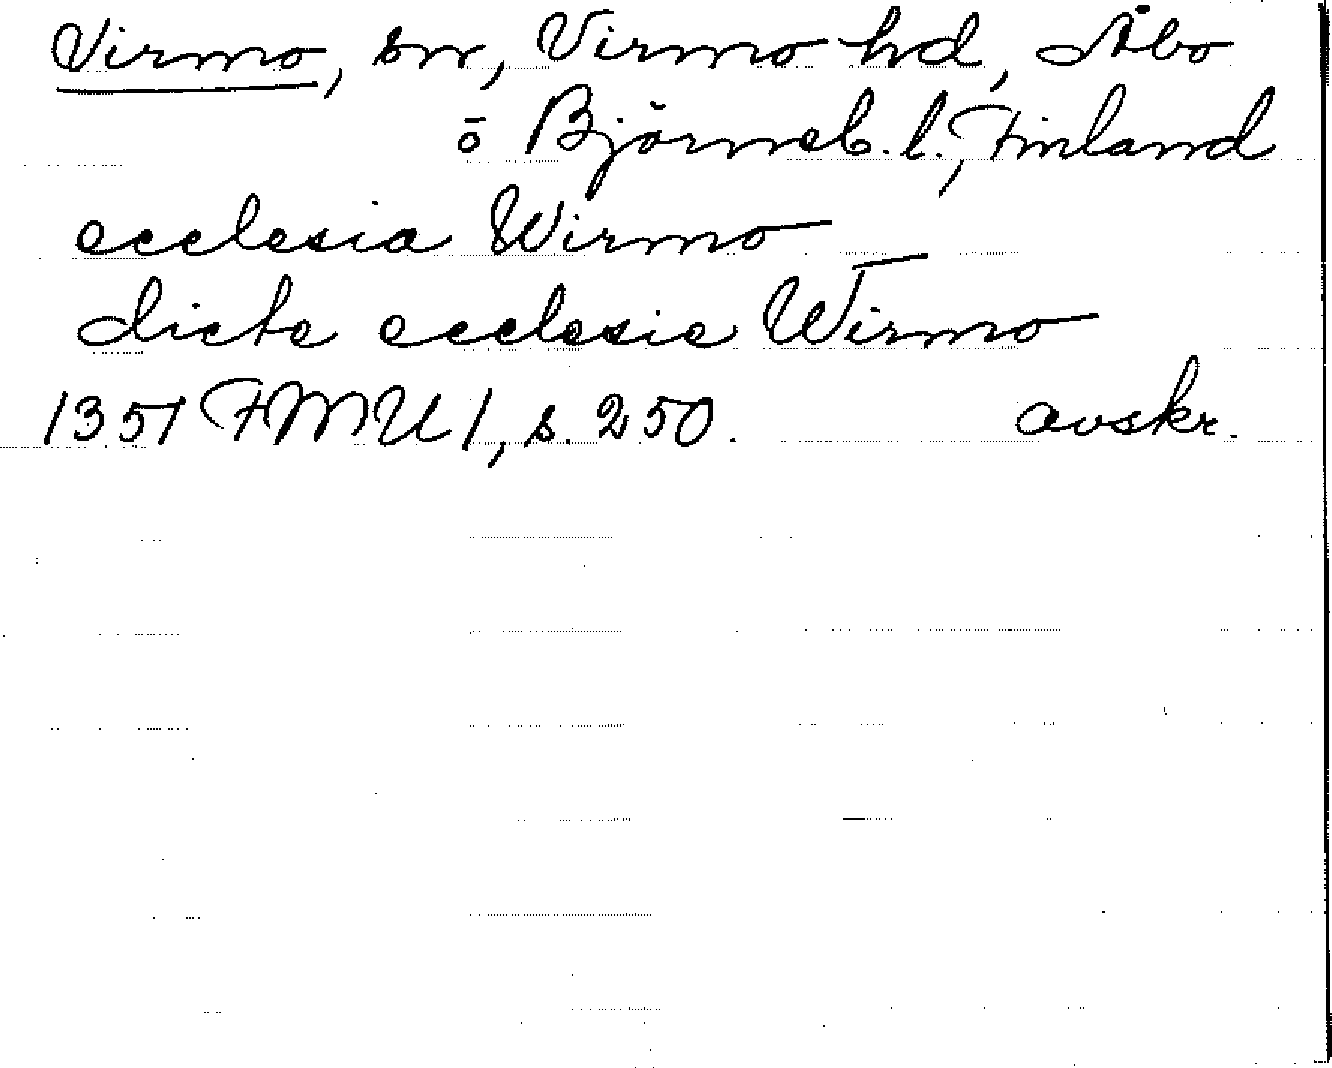 Virmo, sn, Virmo hd, Åbo
o Björneb. l., Finland
ecclesia Wirmo
dicte ecclesie Wirmo
1351 FMU 1, s. 250. avskr.